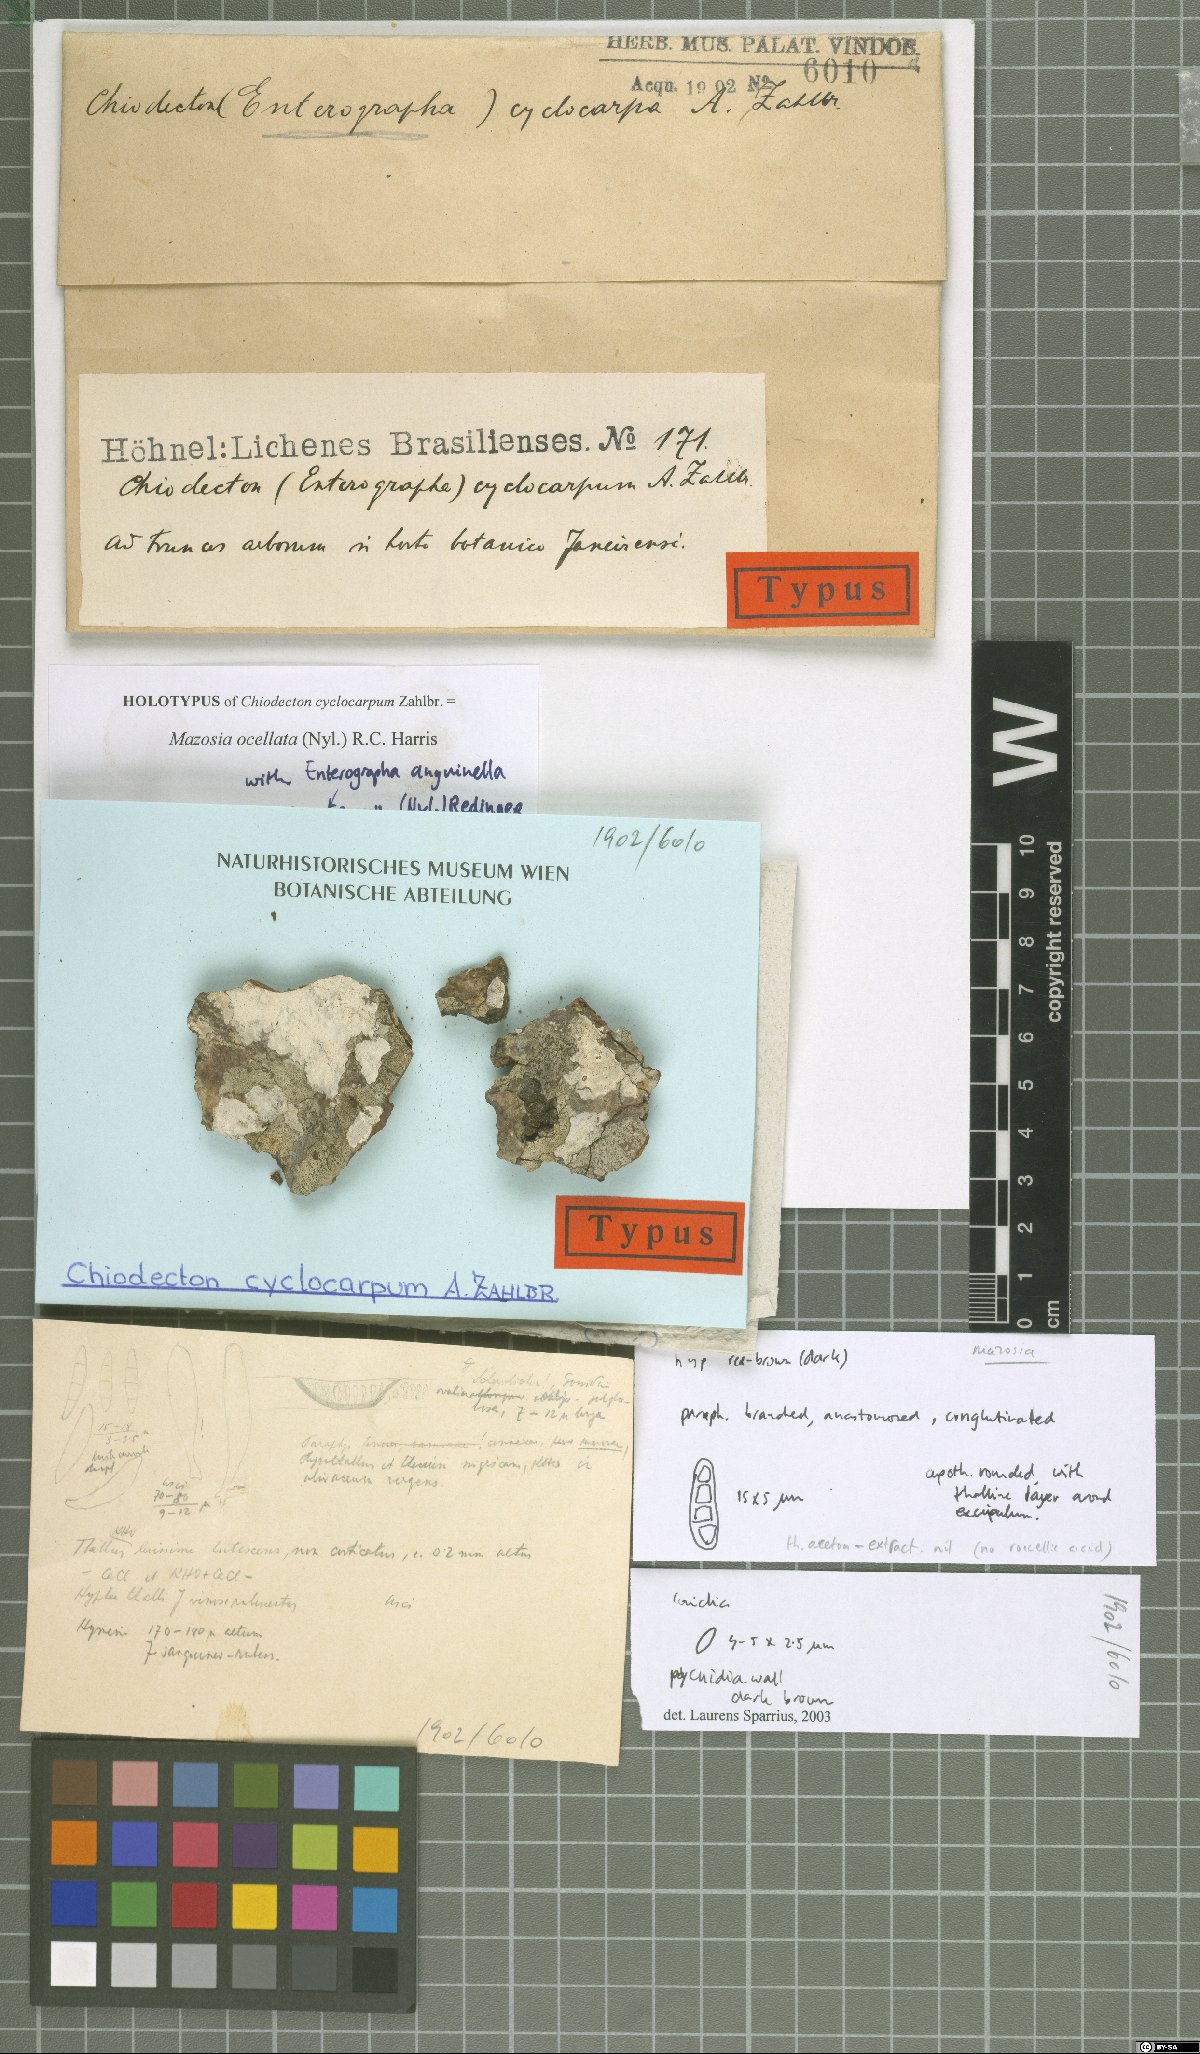 HERB. MUS. PALAT. VINDOB.
Acqu. 1902 No 6010
Chiodecton (Enterographa) cyclocarpa A. Zahlbr.
Höhnel: Lichenes Brasilienses. No 171.
Chiodecton (Enterographa) cyclocarpum A. Zahlbr.
ad truncos arborum in horto botanico Janeirensi.
Typus
HOLOTYPUS of Chiodecton cyclocarpum Zahlbr. =
Mazosia ocellata (Nyl.) R.C. Harris
with Enterographa anguinella
(Nyl.) Redinger
1902/6010
NATURHISTORISCHES MUSEUM WIEN
BOTANISCHE ABTEILUNG
Typus
Chiodecton cyclocarpum A. ZAHLBR.
W
0 1 2 3 4 5 6 7 8 9 10
cm
copyright reserved
15-18
asci
70-80
9-12 µ
7-12 µ longa
KHO
Thallus lutescens, non corticatus, c. 0.2 mm altus
- CaCl et KHO+CaCl -
asci
Hymen. 170-180 µ altum
J sanguineo-rubens.
1902/6010
mazosia
hyp red-brown (dark)
paraph. branched, anastomosed, conglutinated
15 x 5 µm
apoth. rounded, with
thalline layer around
excipulum.
th. aceton-extract. nil (no roccellic acid)
conidia
4-5 x 2.5 µm
pycnidia wall
dark brown
det. Laurens Sparrius, 2003
1902/6010
CC BY-SA